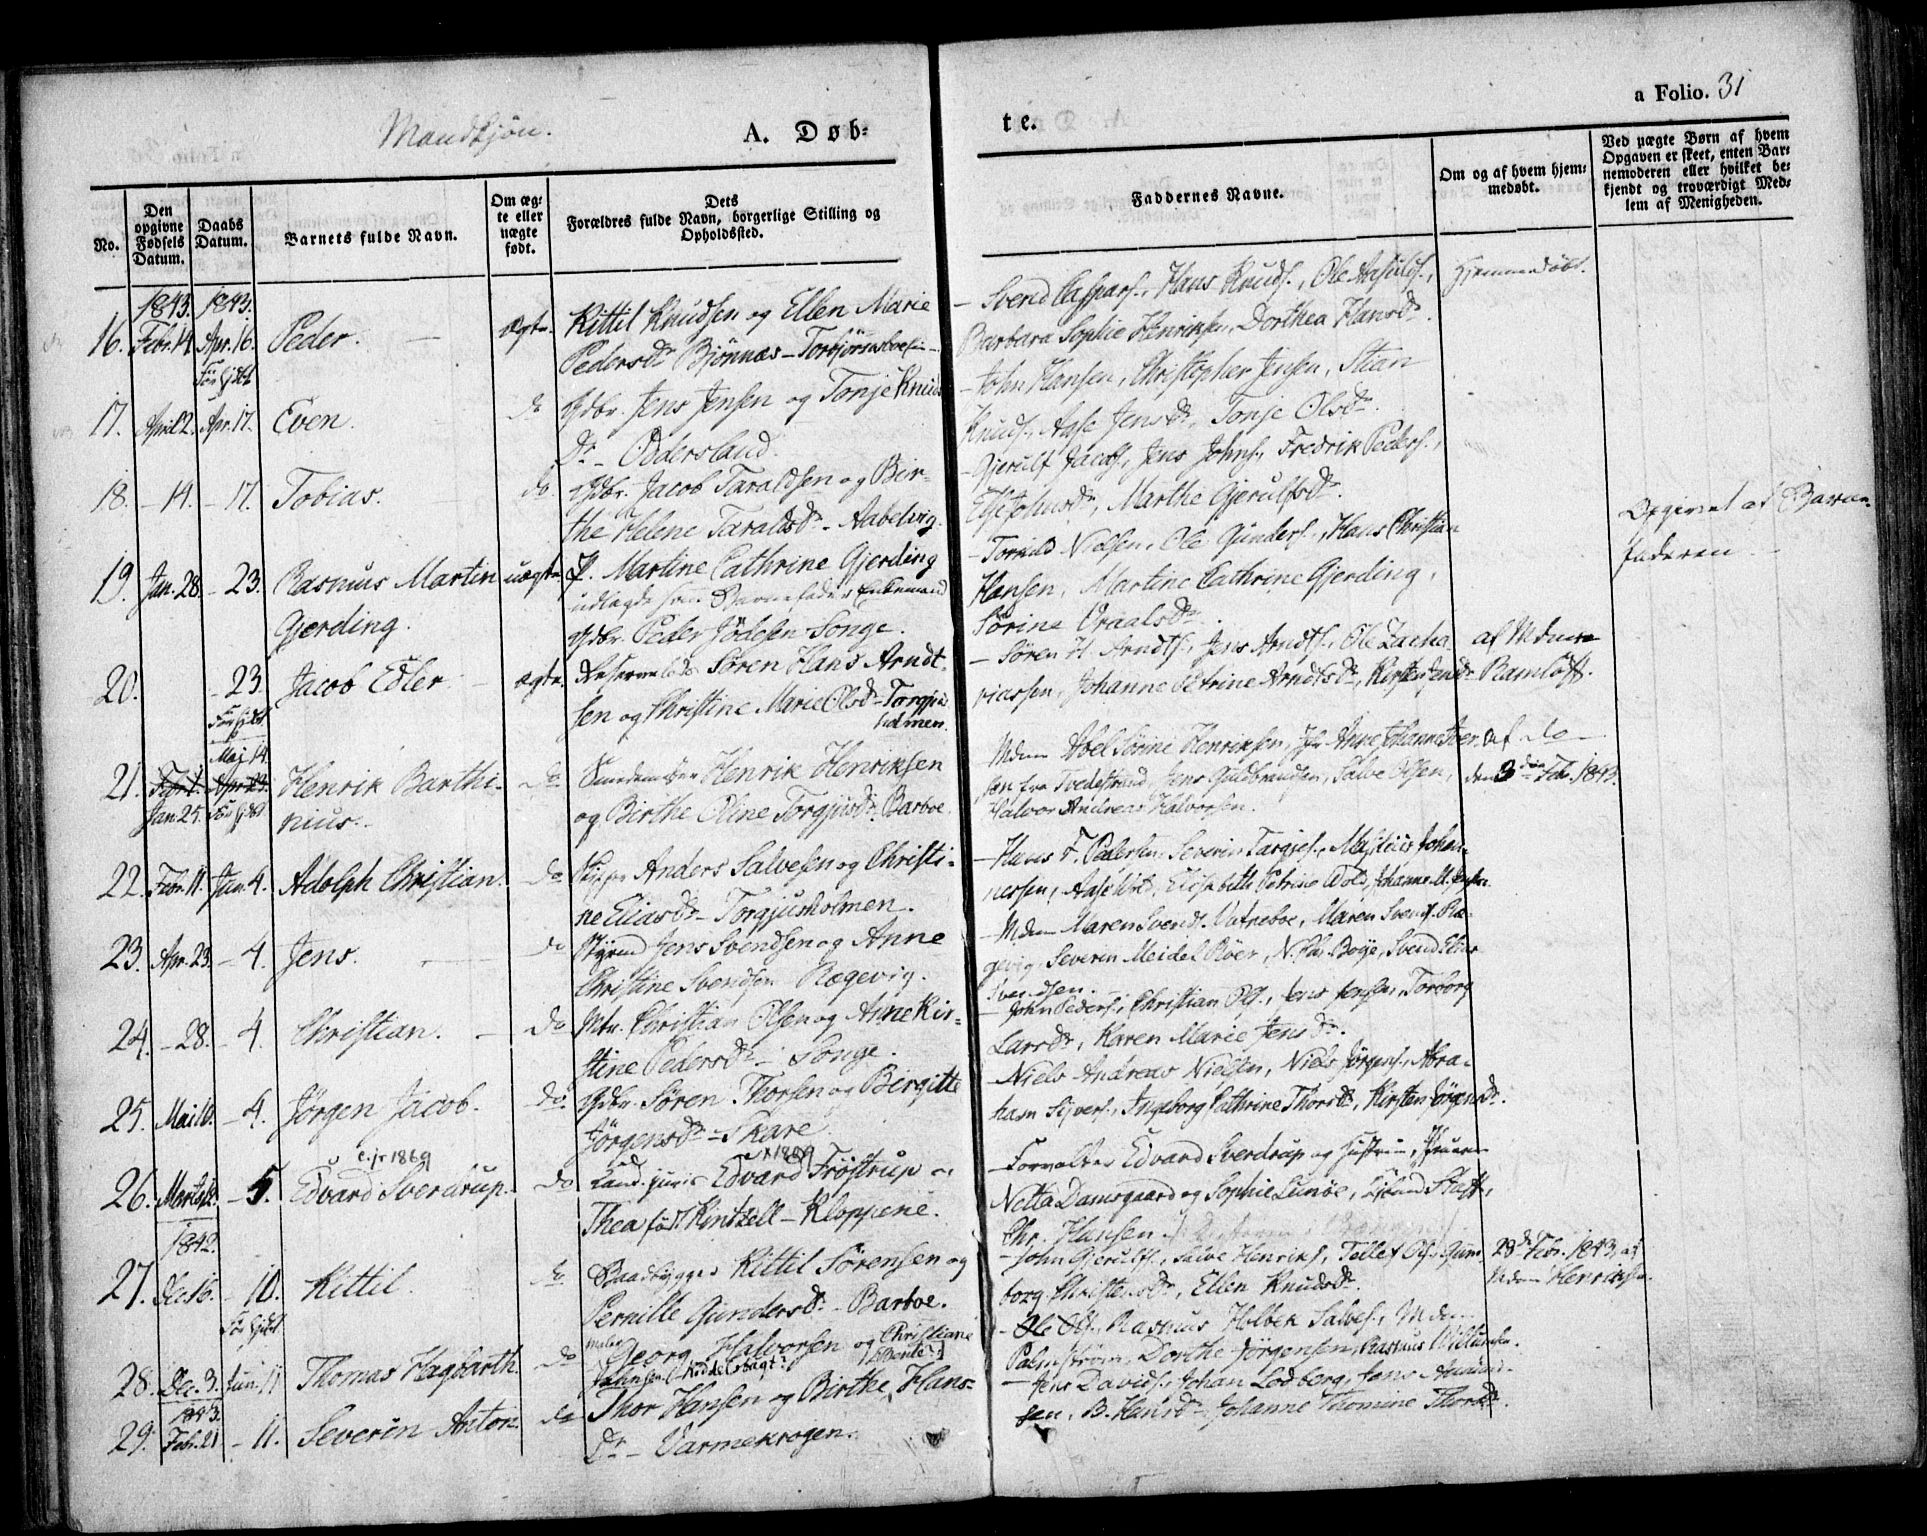 Mandkjön.
A. Døb-
te.
a Folio. 31
No.
Den opgivne Fødsels Datum.
Daabs Datum.
Barnets fulde Navn.
Om ægte eller uægte født.
Dets Forældres fulde Navn, borgerlige Stilling og Opholdssted.
Faddernes Navne.
Om og af hvem hjemmedøbt.
Ved uægte Børn af hvem Opgaven er skeet, enten Barnemoderen eller hvilket bekjendt og troværdigt Medlem af Menigheden.
1843. 1843.
16. Febr. 14 Apr. 16. Peder. — ægte. Kittil Knudsen og Ellen Marie
Pedersdr Bjönnæs
— Svend Caspars., Hans Knuds., Ole
Barbara Sophie Henriksen, Dorthea Hansdr.
Hjemmedöbt.
17. April 2. Apr. 17. Even. do Gdbr. Jens Jensen og Tonje Knuds
Dr – Oddersland.
— John Hansen, Christopher Jensen, Stian
Knuds., Aase Jensdr, Tonje Olsdr.
18. – 14. – 17. Tobias. do. Gdbr. Jacob Taraldsen og Bir-
the Helene Taraldsdr – Aabelvig.
— Gjerulf Jacobs., Jens Johns., Fredrik Peders.,
Else Johnsdr, Marthe Gjerulfsdr.
19. Jan. 28. – 23. Rasmus Martin uægte P. Martine Cathrine Gjerding
Gjerding. udlagde som Barnefader Enkemand
Gdbr. Peder Jödesen Songe.
— Torkild Nielsen, Ole Gunders., Hans Christian
Hansen, Martine Cathrine Gjerding,
Sörine
Opgivet af Barne-
faderen.
20. – 23 Jacob Edler – ægte. Sören Hans Arndt-
sen og Christine Marie Olsdr – Torgjus
holmen.
— Sören H. Arndts., Jens Arndts., Ole Zacha-
riassen, Johanne Petrine Arndtsdr, Kirsten Jensdr
af Mdme
Ramlöff.
21. Jan. 25. Mai 14. Henrik Barthi-
nius. do Henrik Henriksen
og Birthe Oline Torgjusdr. Barboe
Mdme Abel Sörine Henriksen, Jfr Anne Johanne
fra Tvedestrand, Jens Guldbrandsen, Salve Olsen,
Halvor Andreas Halvorsen.
af do –
den 3die Febr. 1843.
22. Febr. 11. Jun. 4. Adolph Christian. do Skipper Anders Salvesen og Christi-
ne Eliasdr – Torgjusholmen.
— Hans F. Pedersen, Severin Targjes., Johan-
nessen, Elisabeth Petrine Wold, Johanne M.
23. Apr. 23. – 4. Jens. do Styrmd Jens Svendsen og Anne
Christine Svendsen Rægevig.
— Mdme Maren Svends. Vatneboe, Maren Svends. Ræ-
gevig, Severin Meidel Röer, N. Chr. Boije, Svend Elias
Svendsen.
24. – 28. – 4. Christian. – do Mtr. Christian Olsen og Anne Kir-
stine Pedersdr – Songe.
— John Peders., Christian Ols., Jens Jensen, Torborg
Larsdr, Karen Marie Jensdr.
25. Mai 10. – 4. Jörgen Jacob. do Gdbr. Sören Thorsen og Birgitte
Jörgensdr – Skare.
— Niels Andreas Nielsen, Niels Jörgens., Abra-
ham Sivers., Ingeborg Cathrine Thorsdr, Kirsten Jörgensdr.
e. jr 1869
26. Marts 12. – 5. Edvard Sverdrup. do Cand. juris Edvard Fröstrup og
Thea föd Kintzell – Kloppene.
— Forvalter Edvard Sverdrup og Hustru,
Netta Damsgaard og Sophie Lunöe,
Chr. Hansen
1842.
27. Dec. 16. – 10. Kittil. do Baadbygger Kittil Sörensen og
Pernille Gundersdr – Barboe.
— John Gjerulfs., Salve Henriks., Tellef Ols., Gun-
borg Christensdr, Ellen Knudsdr.
28de Febr. 1843, af
Mdme Henriksen.
28. Dec. 3. Jun. 11 Thomas Hagbarth. do Maler Georg Halvorsen og Christiane
— Ole Ols., Rasmus Holbek Salves., Mdme
Palmström, Dorthe Jörgensen, Rasmus
1843.
29. Febr. 21 – 11. Severin Anton. do Thor Hansen og Birthe Hans-
Dr – Varmekrogen.
— Jens Davids., Johan Lodberg, Jens Amund-
sen, B. Hansdr, Johanne Thomine Thorsdr.